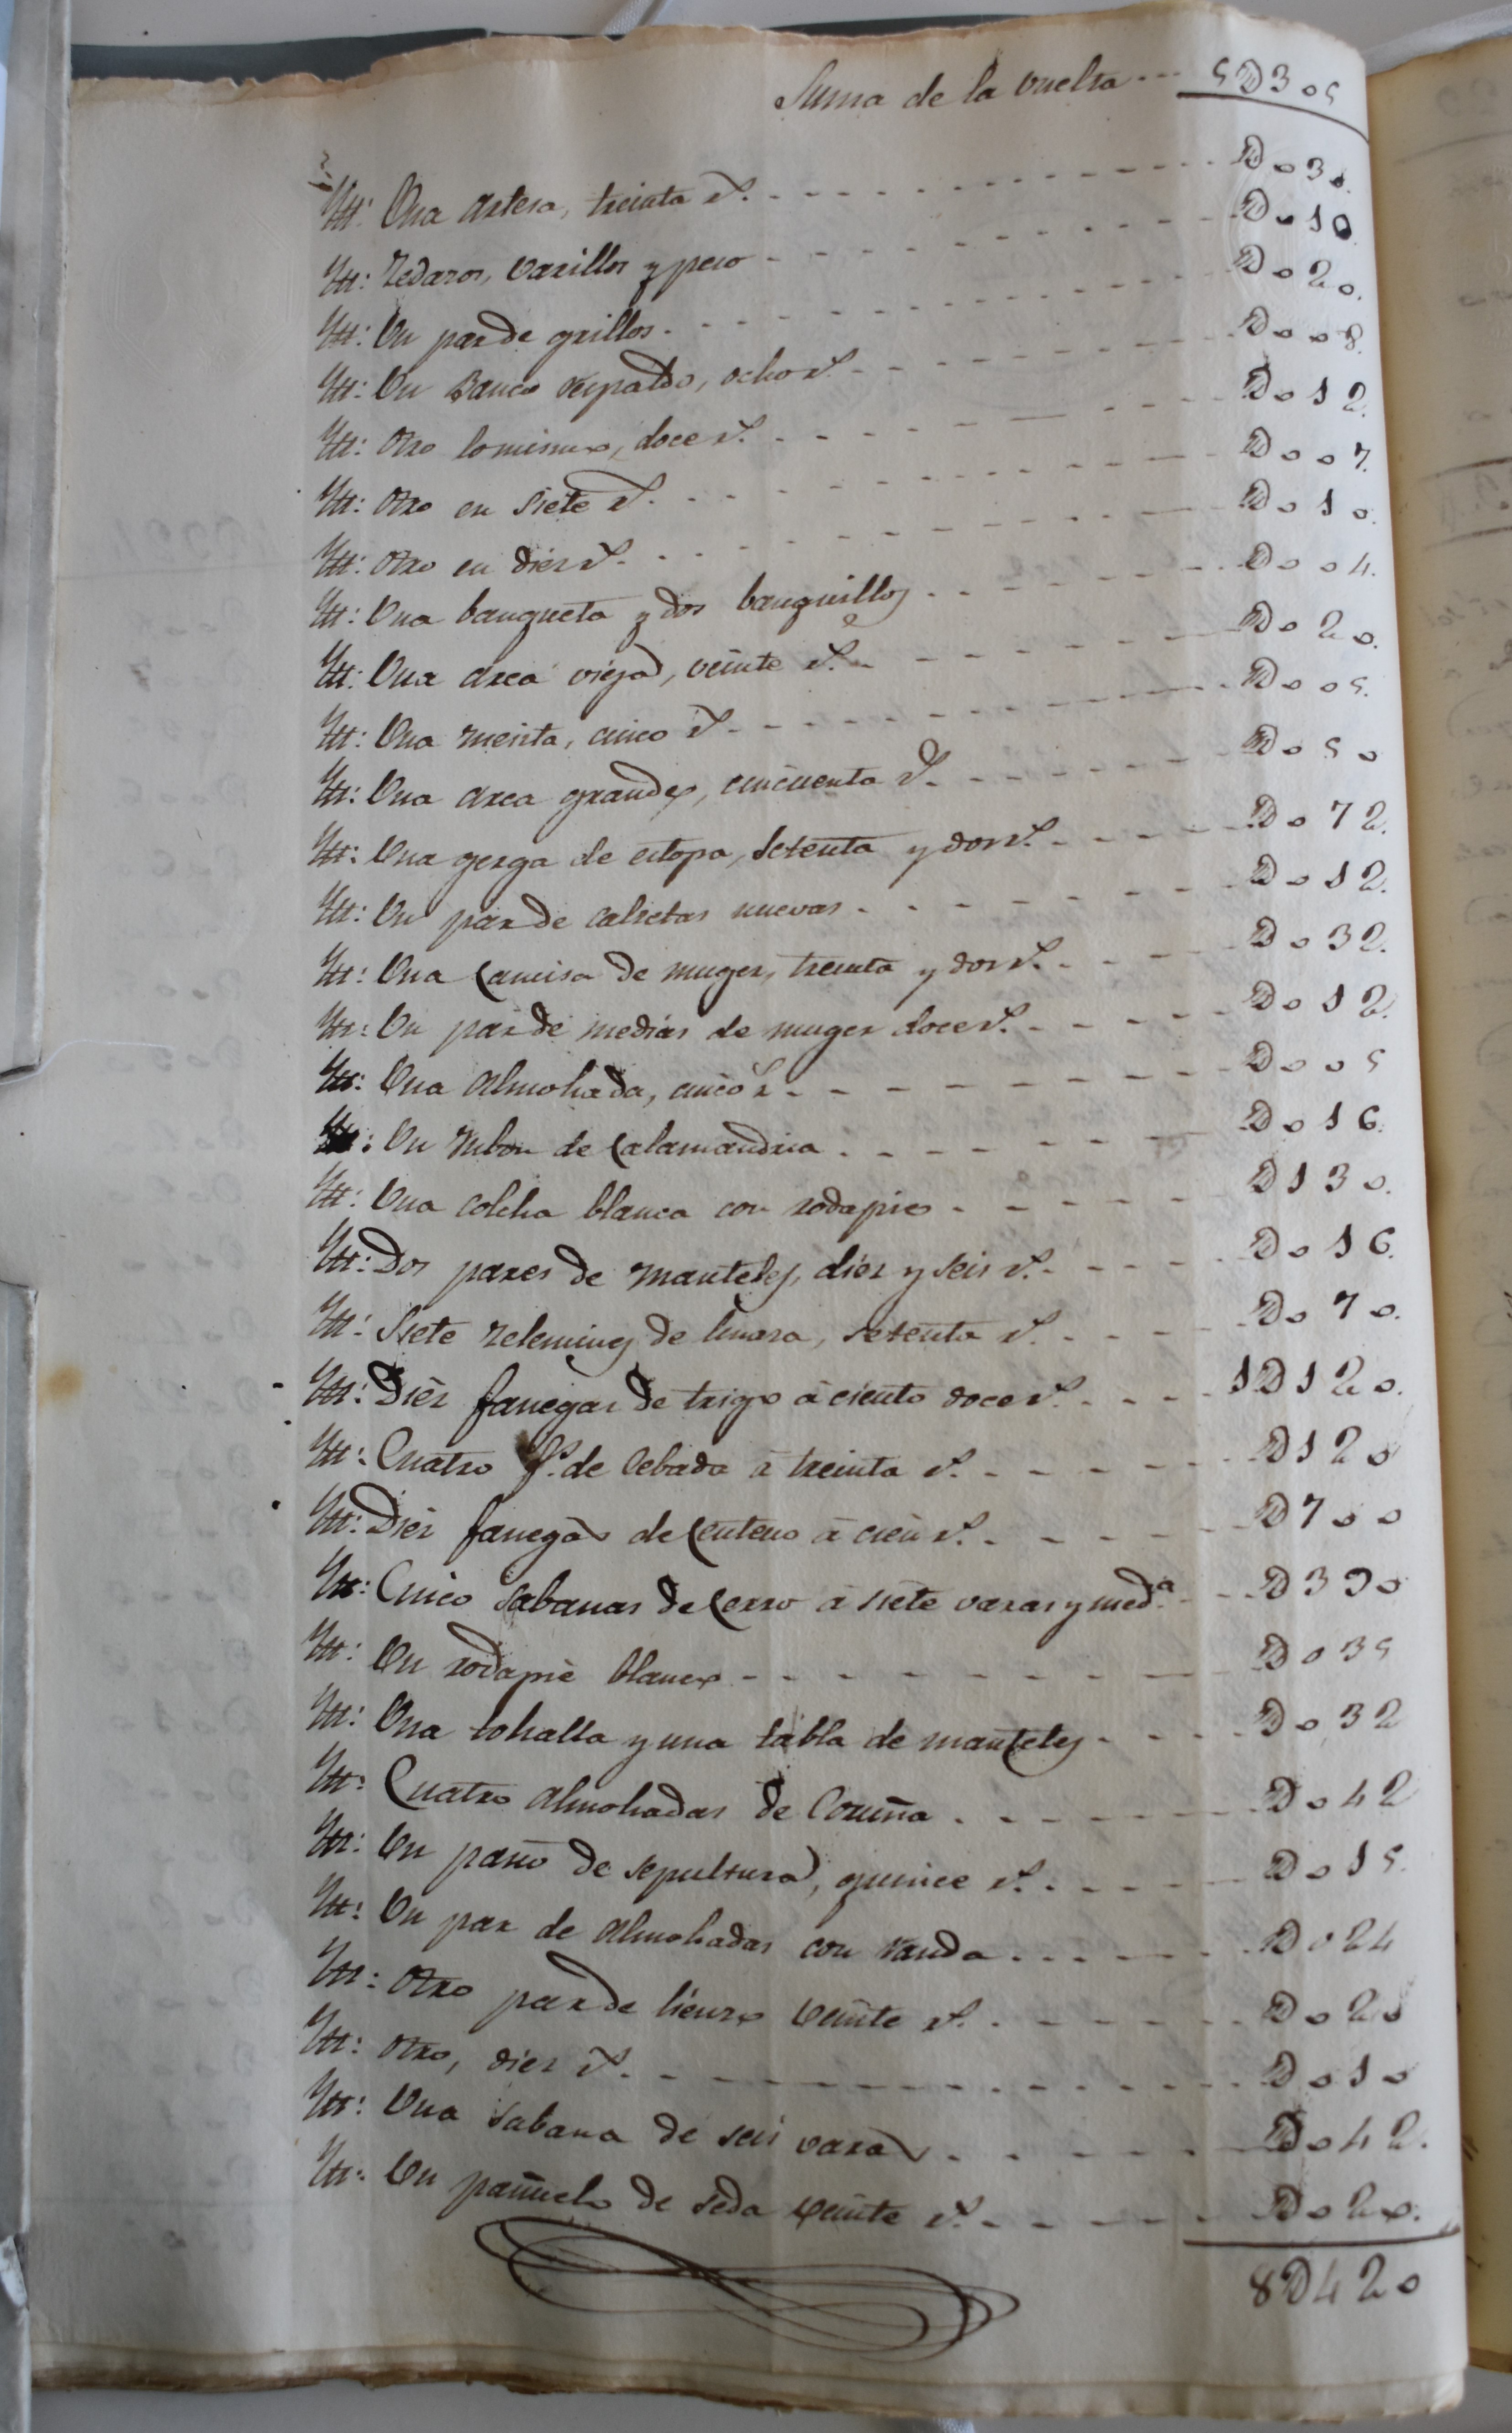 Suma de la vuelta --- 5D305
Ytt: Una artesa, treinta r.s - - - D030.
Ytt: Zedazos, varillos y peso - - - D010
Ytt: Un par de grillos - - - D020.
Ytt: Un Banco respaldo, ocho r.s - - - D008.
Ytt: Otro lo mismo, doce r.s - - - D012.
Ytt: Otro en siete r.s - - - D007.
Ytt: Otro en diez r.s - - - D010.
Ytt: Una banqueta y dos banquillos - - - D004.
Ytt: Una arca vieja, veinte r.s - - - D020.
Ytt: Una mesita, cinco r.s - - - D005.
Ytt: Una arca grande, cincuenta r.s - - - D050
Ytt: Una gerga de estopa, setenta y dos r.s - - - D072.
Ytt: Un par de calzetas nuevas - - - D012.
Ytt: Una Camisa de muger, treinta y dos r.s - - - D032.
Ytt: Un par de medias de muger doce r.s - - - D012.
Ytt: Una Almohada, cinco r.s - - - D005
Ytt: Un Jubon de Calamandria - - - D016.
Ytt: Una colcha blanca con rodapies - - - D130.
Ytt: Dos pares de manteles, diez y seis r.s - - - D016.
Ytt: Siete zelemines de linaza, setenta r.s - - - D070.
Ytt: Diez fanegas de trigo à ciento doce r.s - - - 1D120.
Ytt: Cuatro f.s de Cebada à treinta r.s - - - D120
Ytt: Diez fanegas de Centeno à cien r.s - - - D700
Ytt: Cinco sabanas de Cerro à siete varas y med.a - - - D390
Ytt: Un rodapie blanco - - - D035
Ytt: Una tohalla y una tabla de manteles - - - D032
Ytt: Cuatro Almohadas de Coruña - - - D042
Ytt: Un paño de sepultura, quince r.s - - - D015.
Ytt: Un par de Almohadas con vanda - - - D024
Ytt: Otro par de lienzo veinte r.s - - - D020
Ytt: Otro, diez r.s - - - D010
Ytt: Una sabana de seis varas - - - D042.
Ytt: Un pañuelo de seda veinte r.s - - - D020.
8D420